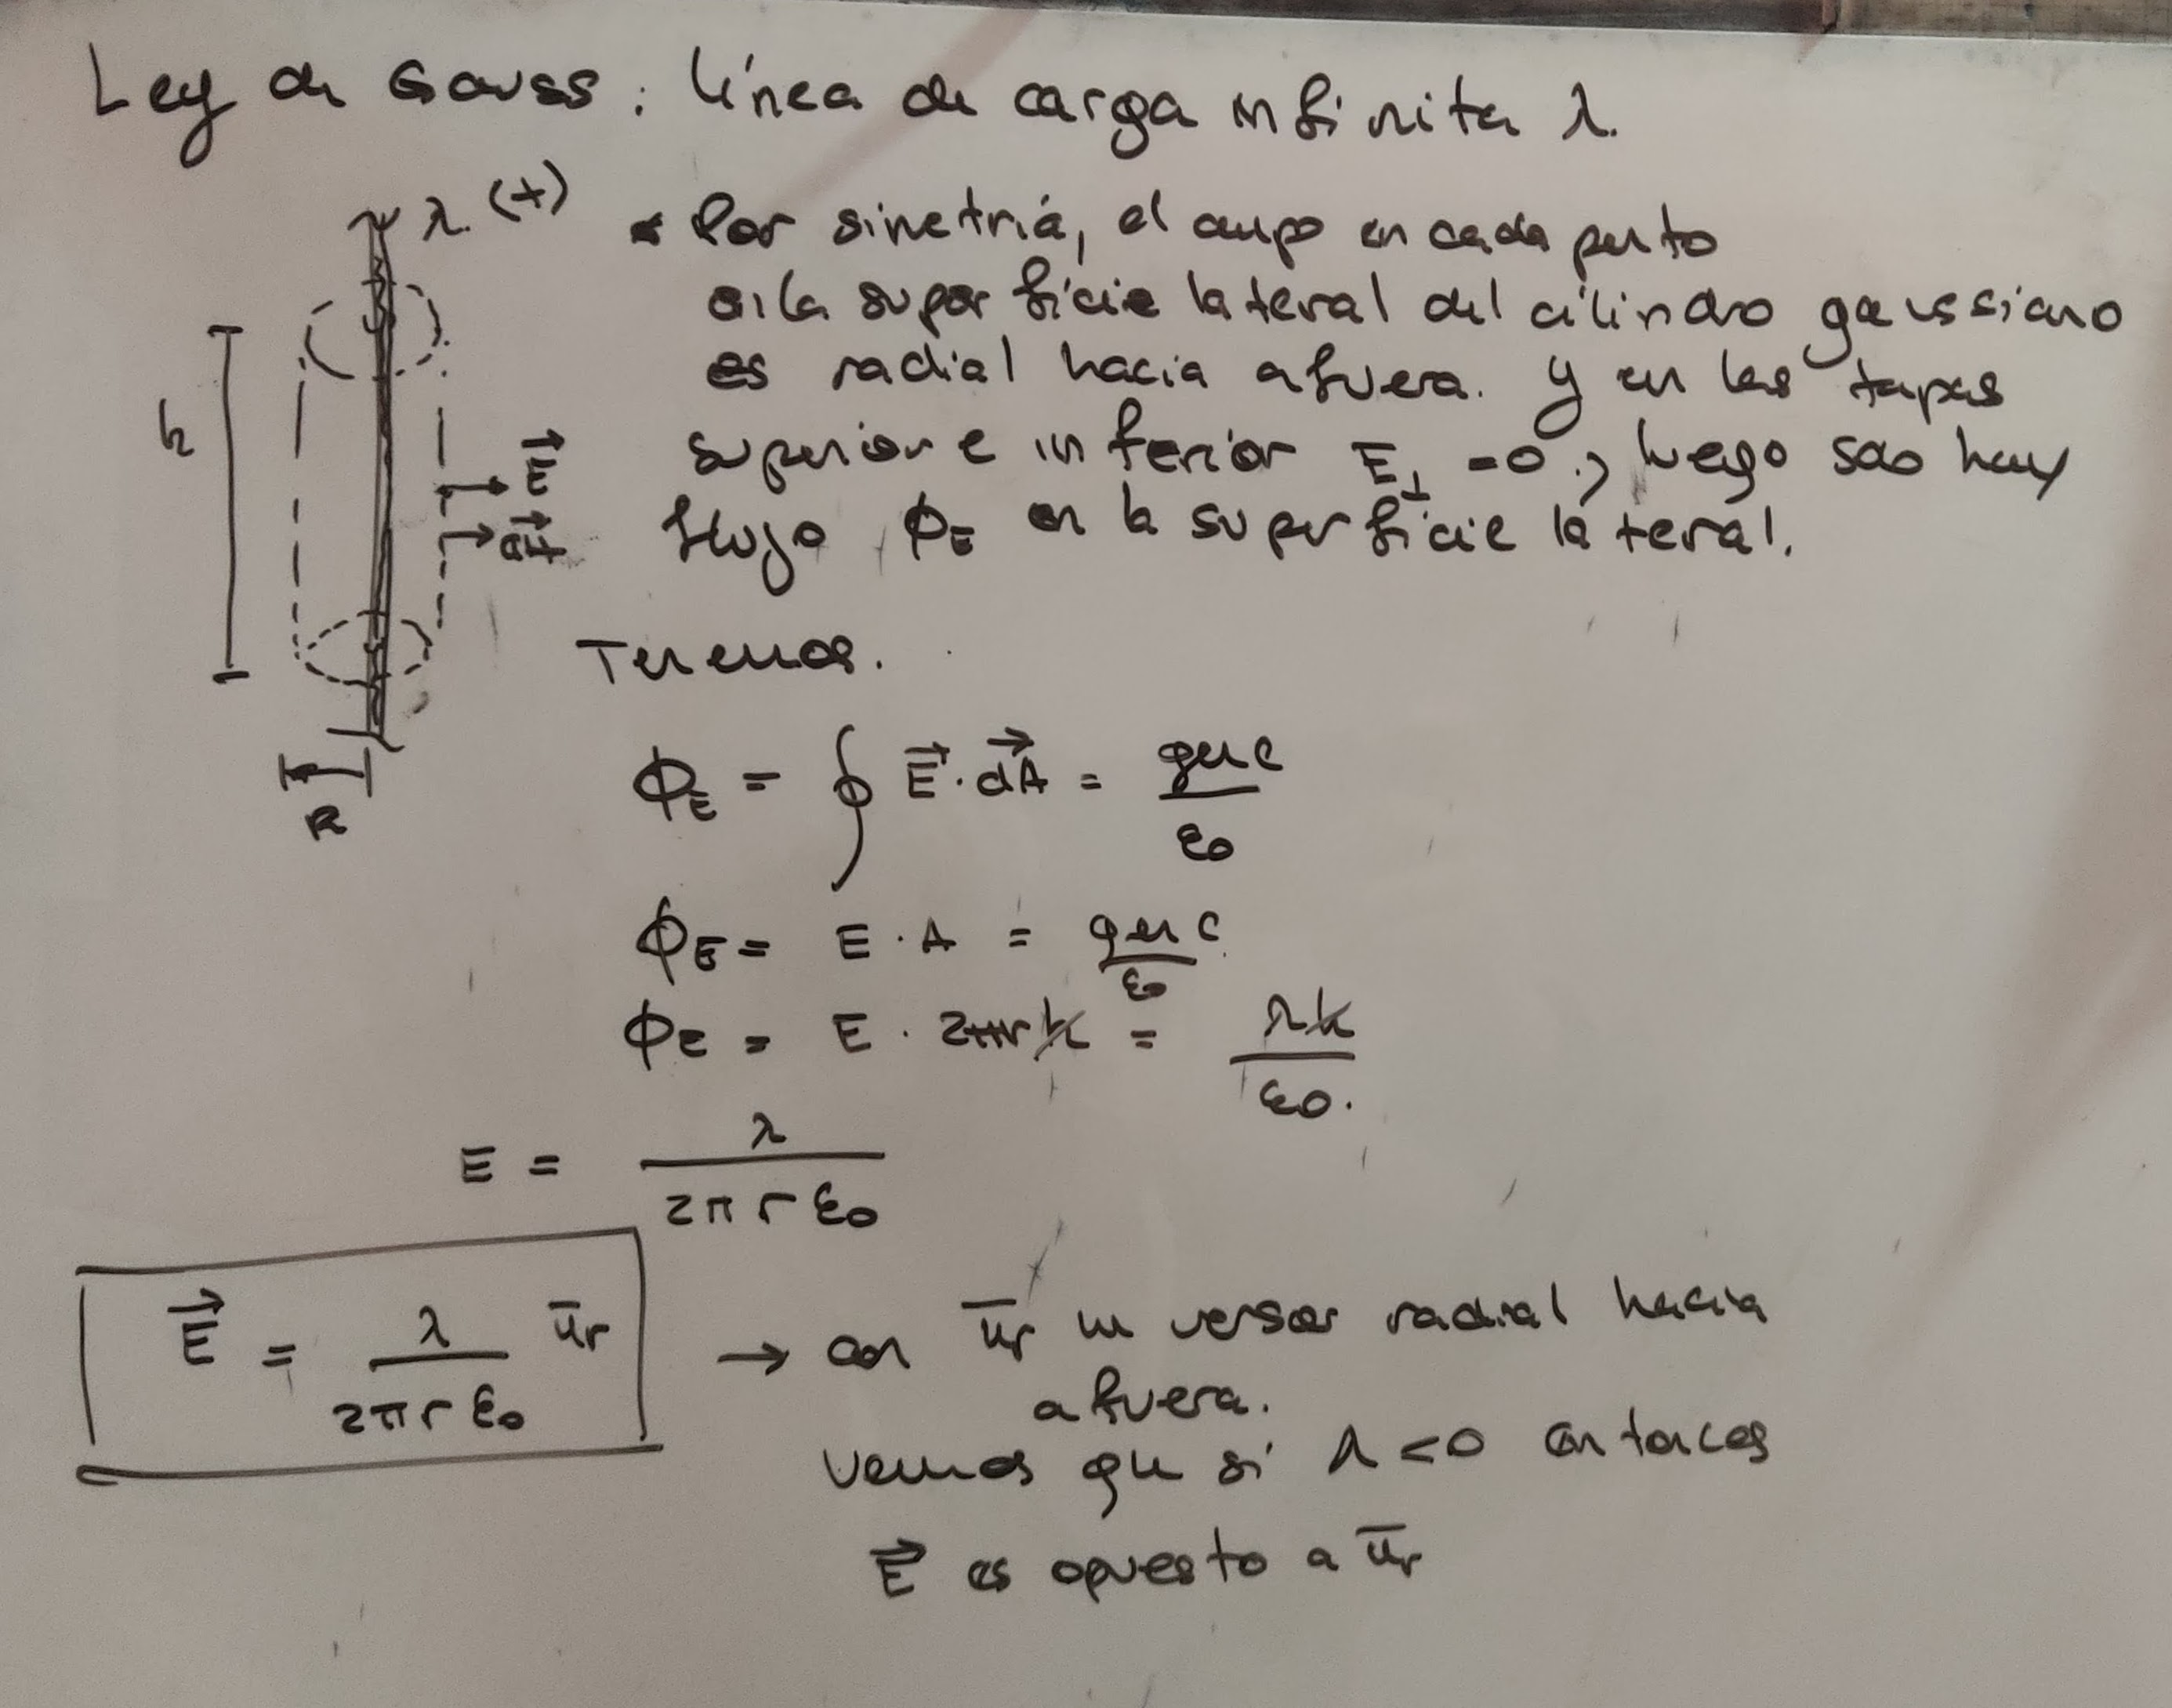 Ley de Gauss: línea de carga infinita λ.
λ (+)
h
E⃗
dA⃗
R
• Por simetría, el campo en cada punto
en la superficie lateral del cilindro gaussiano
es radial hacia afuera. y en las tapas
superior e inferior E⊥ = 0, luego solo hay
flujo ϕE en la superficie lateral.
Tenemos.
ϕE = ∮ E⃗ · dA⃗ = qenc / ε0
ϕE = E · A = qenc / ε0
ϕE = E · 2πrh = λh / ε0.
E = λ / 2πrε0
E⃗ = λ / 2πrε0 ūr
→ con ūr un versor radial hacia
afuera.
vemos que si λ < 0 entonces
E⃗ es opuesto a ūr